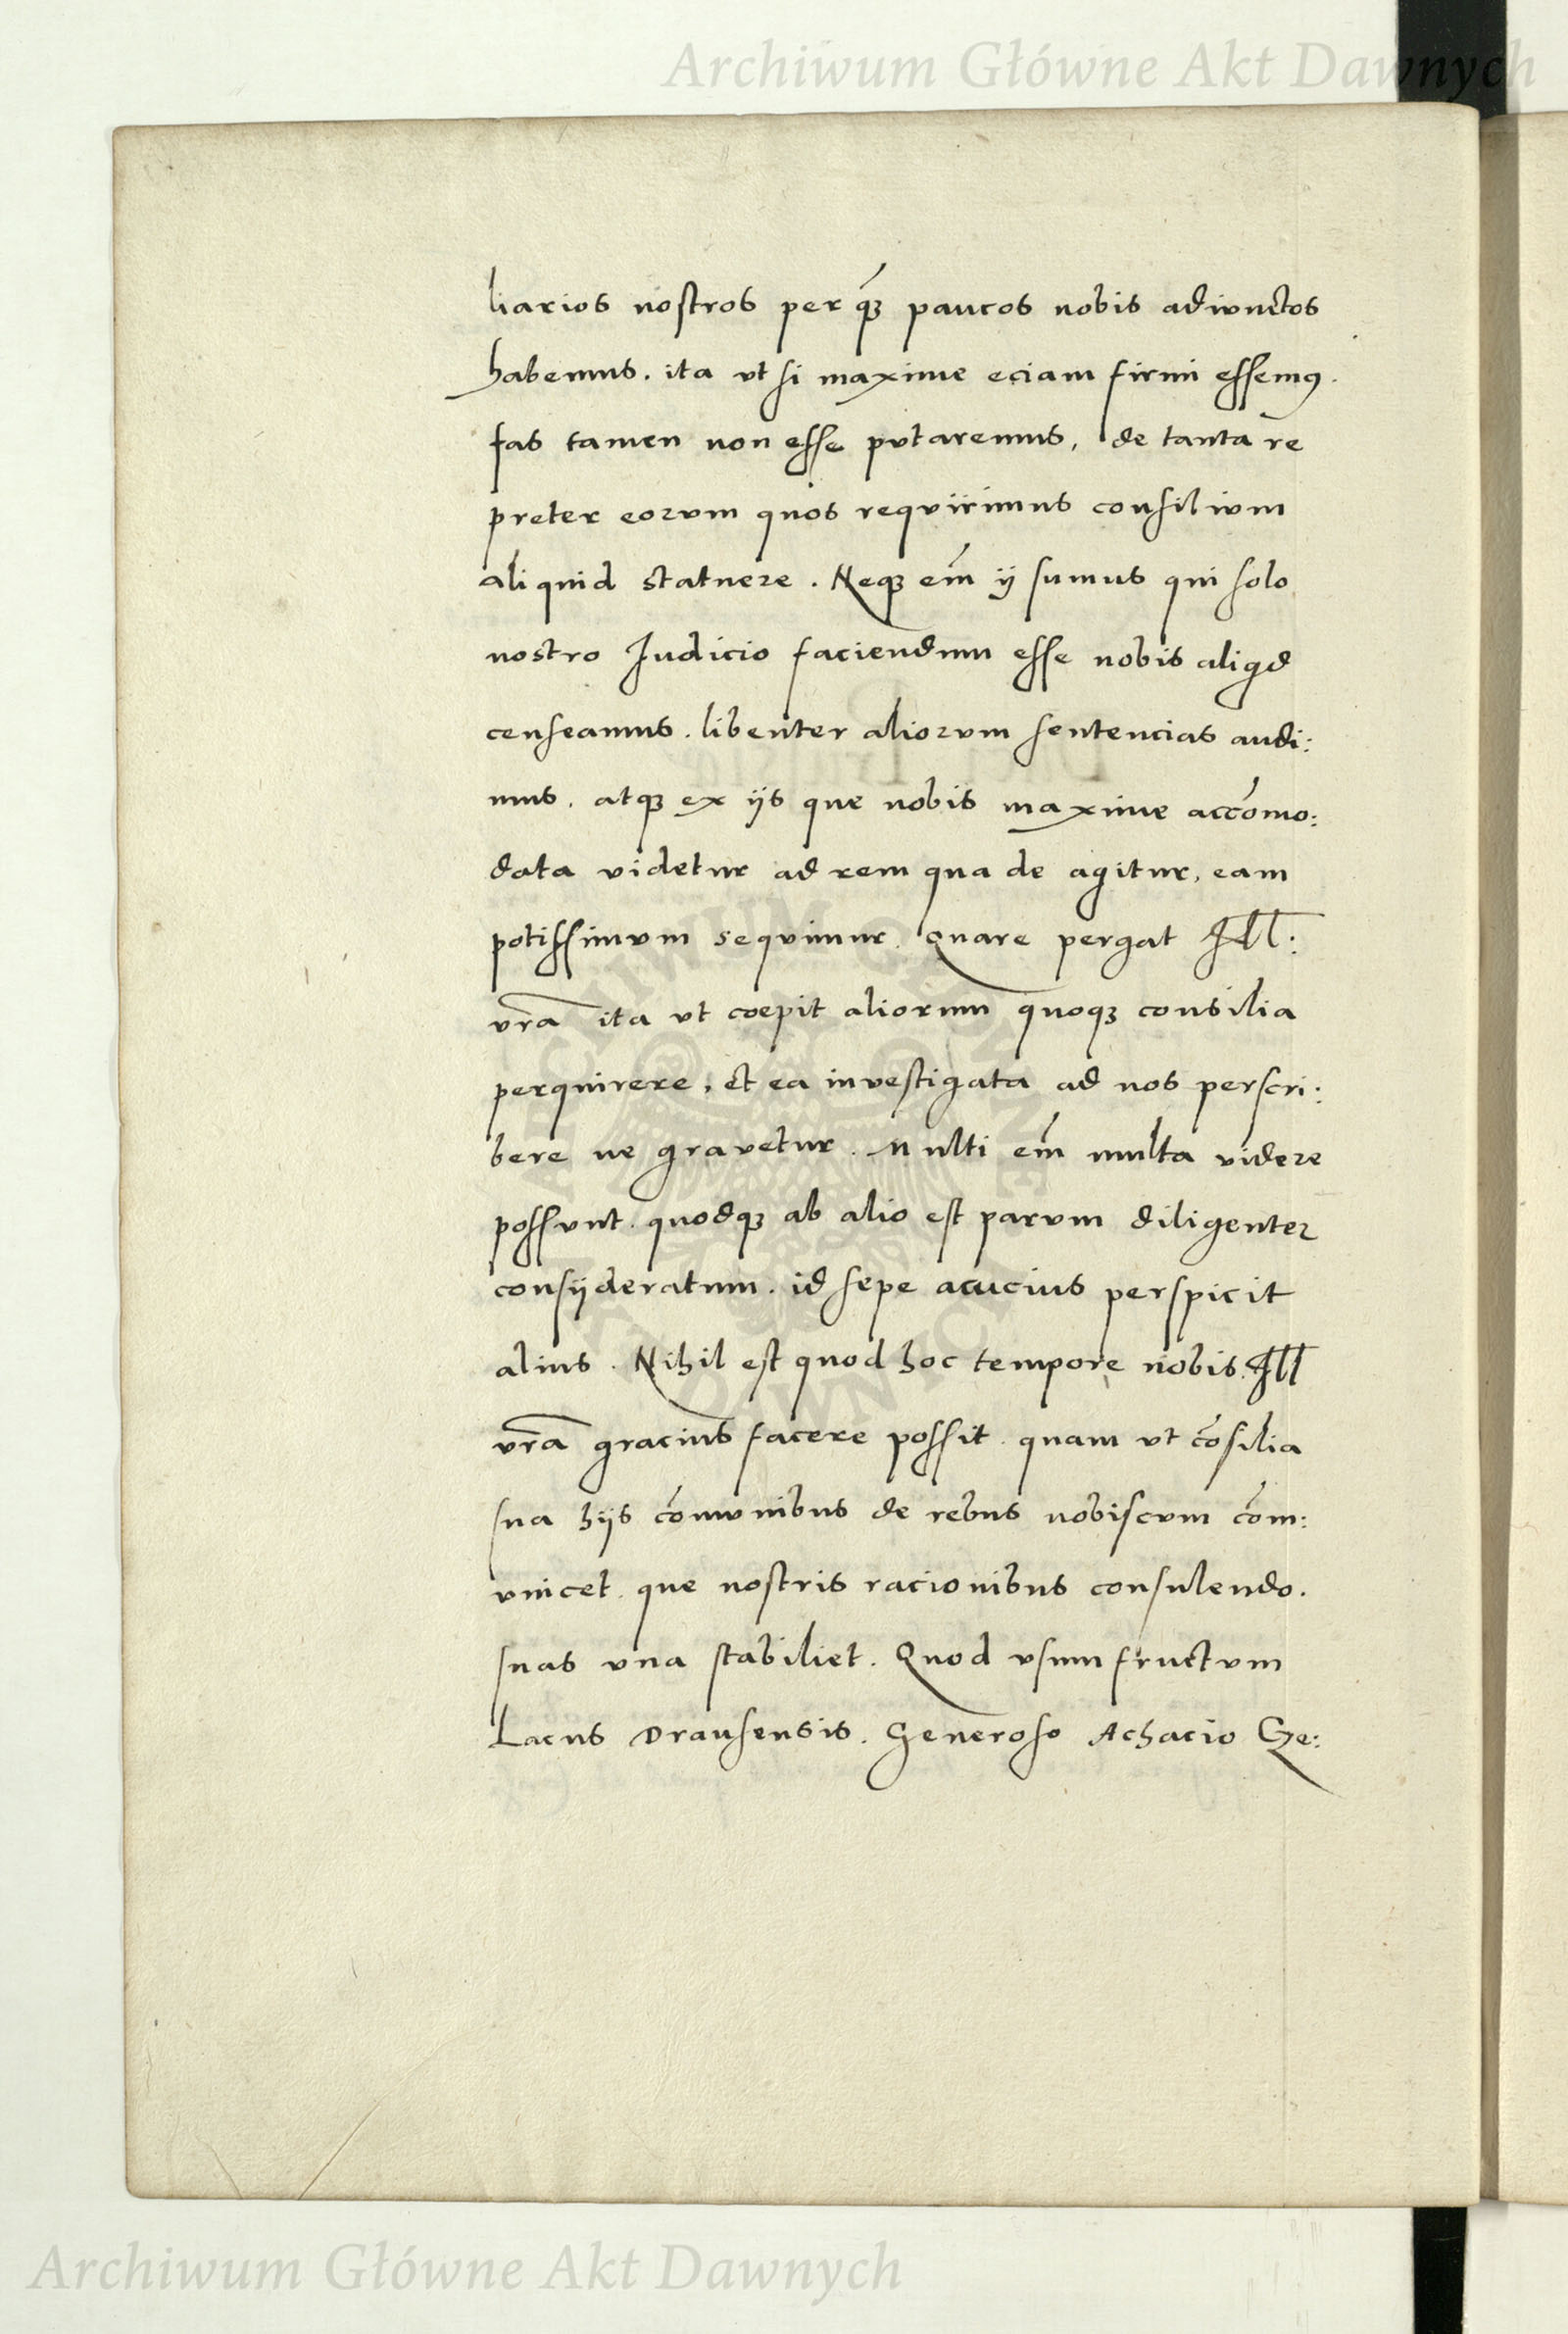 Archiwum Główne Akt Dawnych
liarios nostros per q̃ꝫ paucos nobis adiunctos
habemus. ita vt si maxime eciam firmi essemꝯ.
fas tamen non esse putaremus, de tanta re
preter eorum quos requirimus consilium
aliquid statuere. Neqꝫ em̃ ij sumus qui solo
nostro Iudicio faciendum esse nobis aliqd
censeamus. libenter aliorum sentencias audi:
mus. atqꝫ ex ijs que nobis maxime accõmo:
data videtur ad rem qua de agitur, eam
potissimum sequimur. Quare pergat Ill:
vr̃a ita vt coepit aliorum quoqꝫ consilia
perquirere, et ea investigata ad nos perscri:
bere ne gravetur. Multi em̃ multa videre
possunt. quodqꝫ ab alio est parum diligenter
consijderatum. id sepe acucius perspicit
alius. Nihil est quod hoc tempore nobis Ill
vr̃a gracius facere possit. quam vt cõsilia
sua hijs cõmunibus de rebus nobiscum cõm:
unicet. que nostris racionibus consulendo.
suas vna stabiliet. Quod vsumfructum
Lacus Drausensis. Generoso Achacio Cze:
Archiwum Główne Akt Dawnych